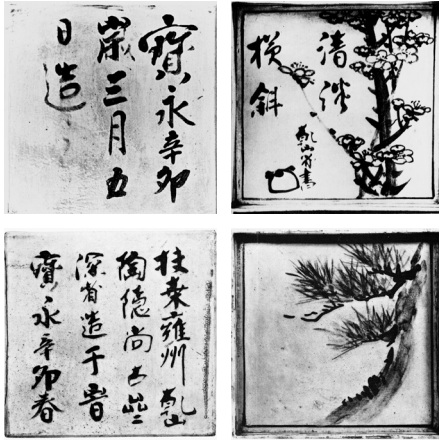 寳永辛卯
歳三月五
日造
清浅
横斜
乾山省書
扶桑雍州 乾山
陶隠尚古齋
深省造于旹
寳永辛卯春